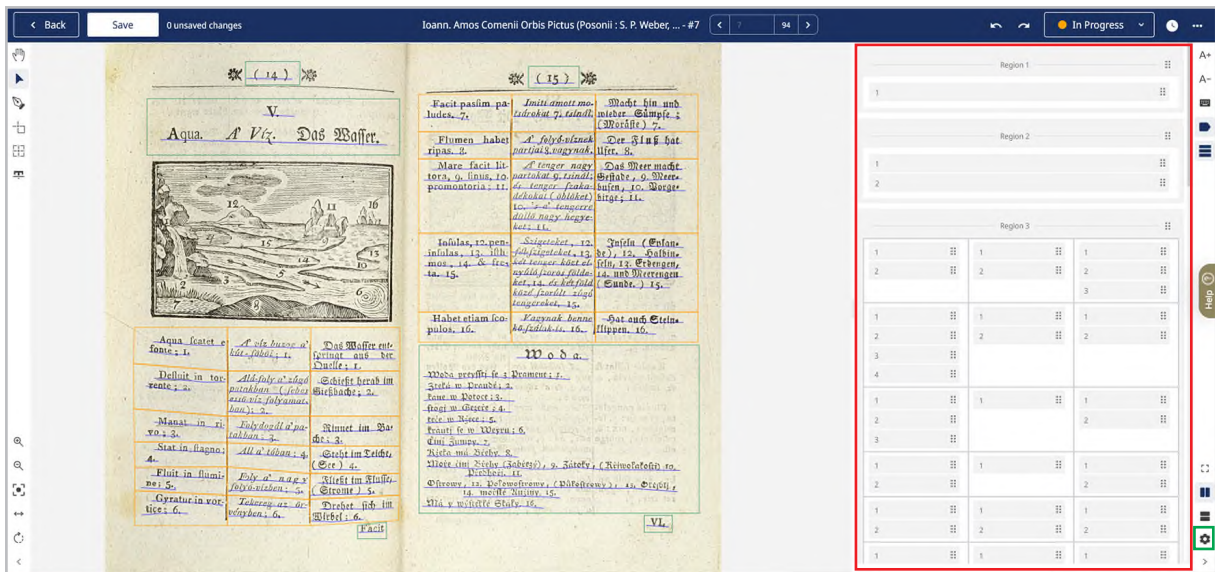 Back
Save
0 unsaved changes
Ioann. Amos Comenii Orbis Pictus (Posonii : S. P. Weber, ... - #7
7
94
In Progress
( 14 )
V.
Aqua. A' Víz. Das Waſſer.
12
11
16
15
13
14
10
7
8
9
Aqua ſcatet e
fonte; 1.
A' víz buzog a'
kút-főből; 1.
Das Waſſer ent-
ſpringt aus der
Quelle; 1.
Defluit in tor-
rente; 2.
Alá-foly a' zúgó
patakban (ſebes
víz folyamat-
ban); 2.
Schießt herab im
Gießbache; 2.
Manat in ri-
vo; 3.
Folydogál a' pa-
takban; 3.
Rinnet im Ba-
che; 3.
Stat in ſtagno;
4.
Áll a' tóban; 4.
Steht im Teiche,
(See) 4.
Fluit in flumi-
ne; 5.
Foly a' nagy
folyó-vízben; 5.
Fließt im Fluſſe,
(Strome) 5.
Gyratur in vor-
tice; 6.
Tekereg az ör-
vényben; 6.
Drehet ſich im
Wirbel; 6.
Facit
( 15 )
Facit paſſim pa-
ludes. 7.
Imitt amott mo-
tsárokat 7. tsinál.
Macht hin und
wieder Sümpfe;
(Moräſte) 7.
Flumen habet
ripas. 8.
A' folyó-víznek
partjai 8. vagynak.
Der Fluß hat
Ufer. 8.
Mare facit lit-
tora, 9. ſinus, 10.
promontoria; 11.
A' tenger nagy
partokat 9. tsinál;
és tenger ſzaka-
dékokat (öblöket)
10. 's a' tengerre
dűlő nagy hegye-
ket; 11.
Das Meer macht
Geſtade, 9. Meer-
buſen, 10. Vorge-
birge; 11.
Inſulas, 12. pen-
inſulas, 13. iſth-
mos, 14. & fre-
ta. 15.
Szigeteket, 12.
fél-ſzigeteket, 13.
két tenger közt el-
nyúló ſzoros földe-
ket, 14. és két föld
közé ſzorúlt zúgó
tengereket. 15.
Inſeln (Eylan-
de), 12. Halbin-
ſeln, 13. Erdengen,
14. und Meerengen
(Sunde.) 15.
Habet etiam ſco-
pulos. 16.
Vagynak benne
kő-ſzálak-is. 16.
Hat auch Stein-
klippen. 16.
Woda.
Woda pryſſtí ſe z Pramene; 1.
2.
w Potoce; 3.
4.
w Rjece; 5.
ſe w Weyru; 6.
činj Žumpy. 7.
Rjeka má Břehy. 8.
Moře činj Břehy (Zábřezý), 9. Zátoky, 10.
11.
Oſtrowy, 12. Polowoſtrowy, 13.
14. 15.
Má y 16.
VI.
Region 1
1
Region 2
1
2
Region 3
1 1 1
2 2 2
3
1 1 1
2 2 2
3
4
1 1 1
2 2
3
1 1 1
2 2
1 1 1
2 2 2
1 1 1
A+
A-
Help